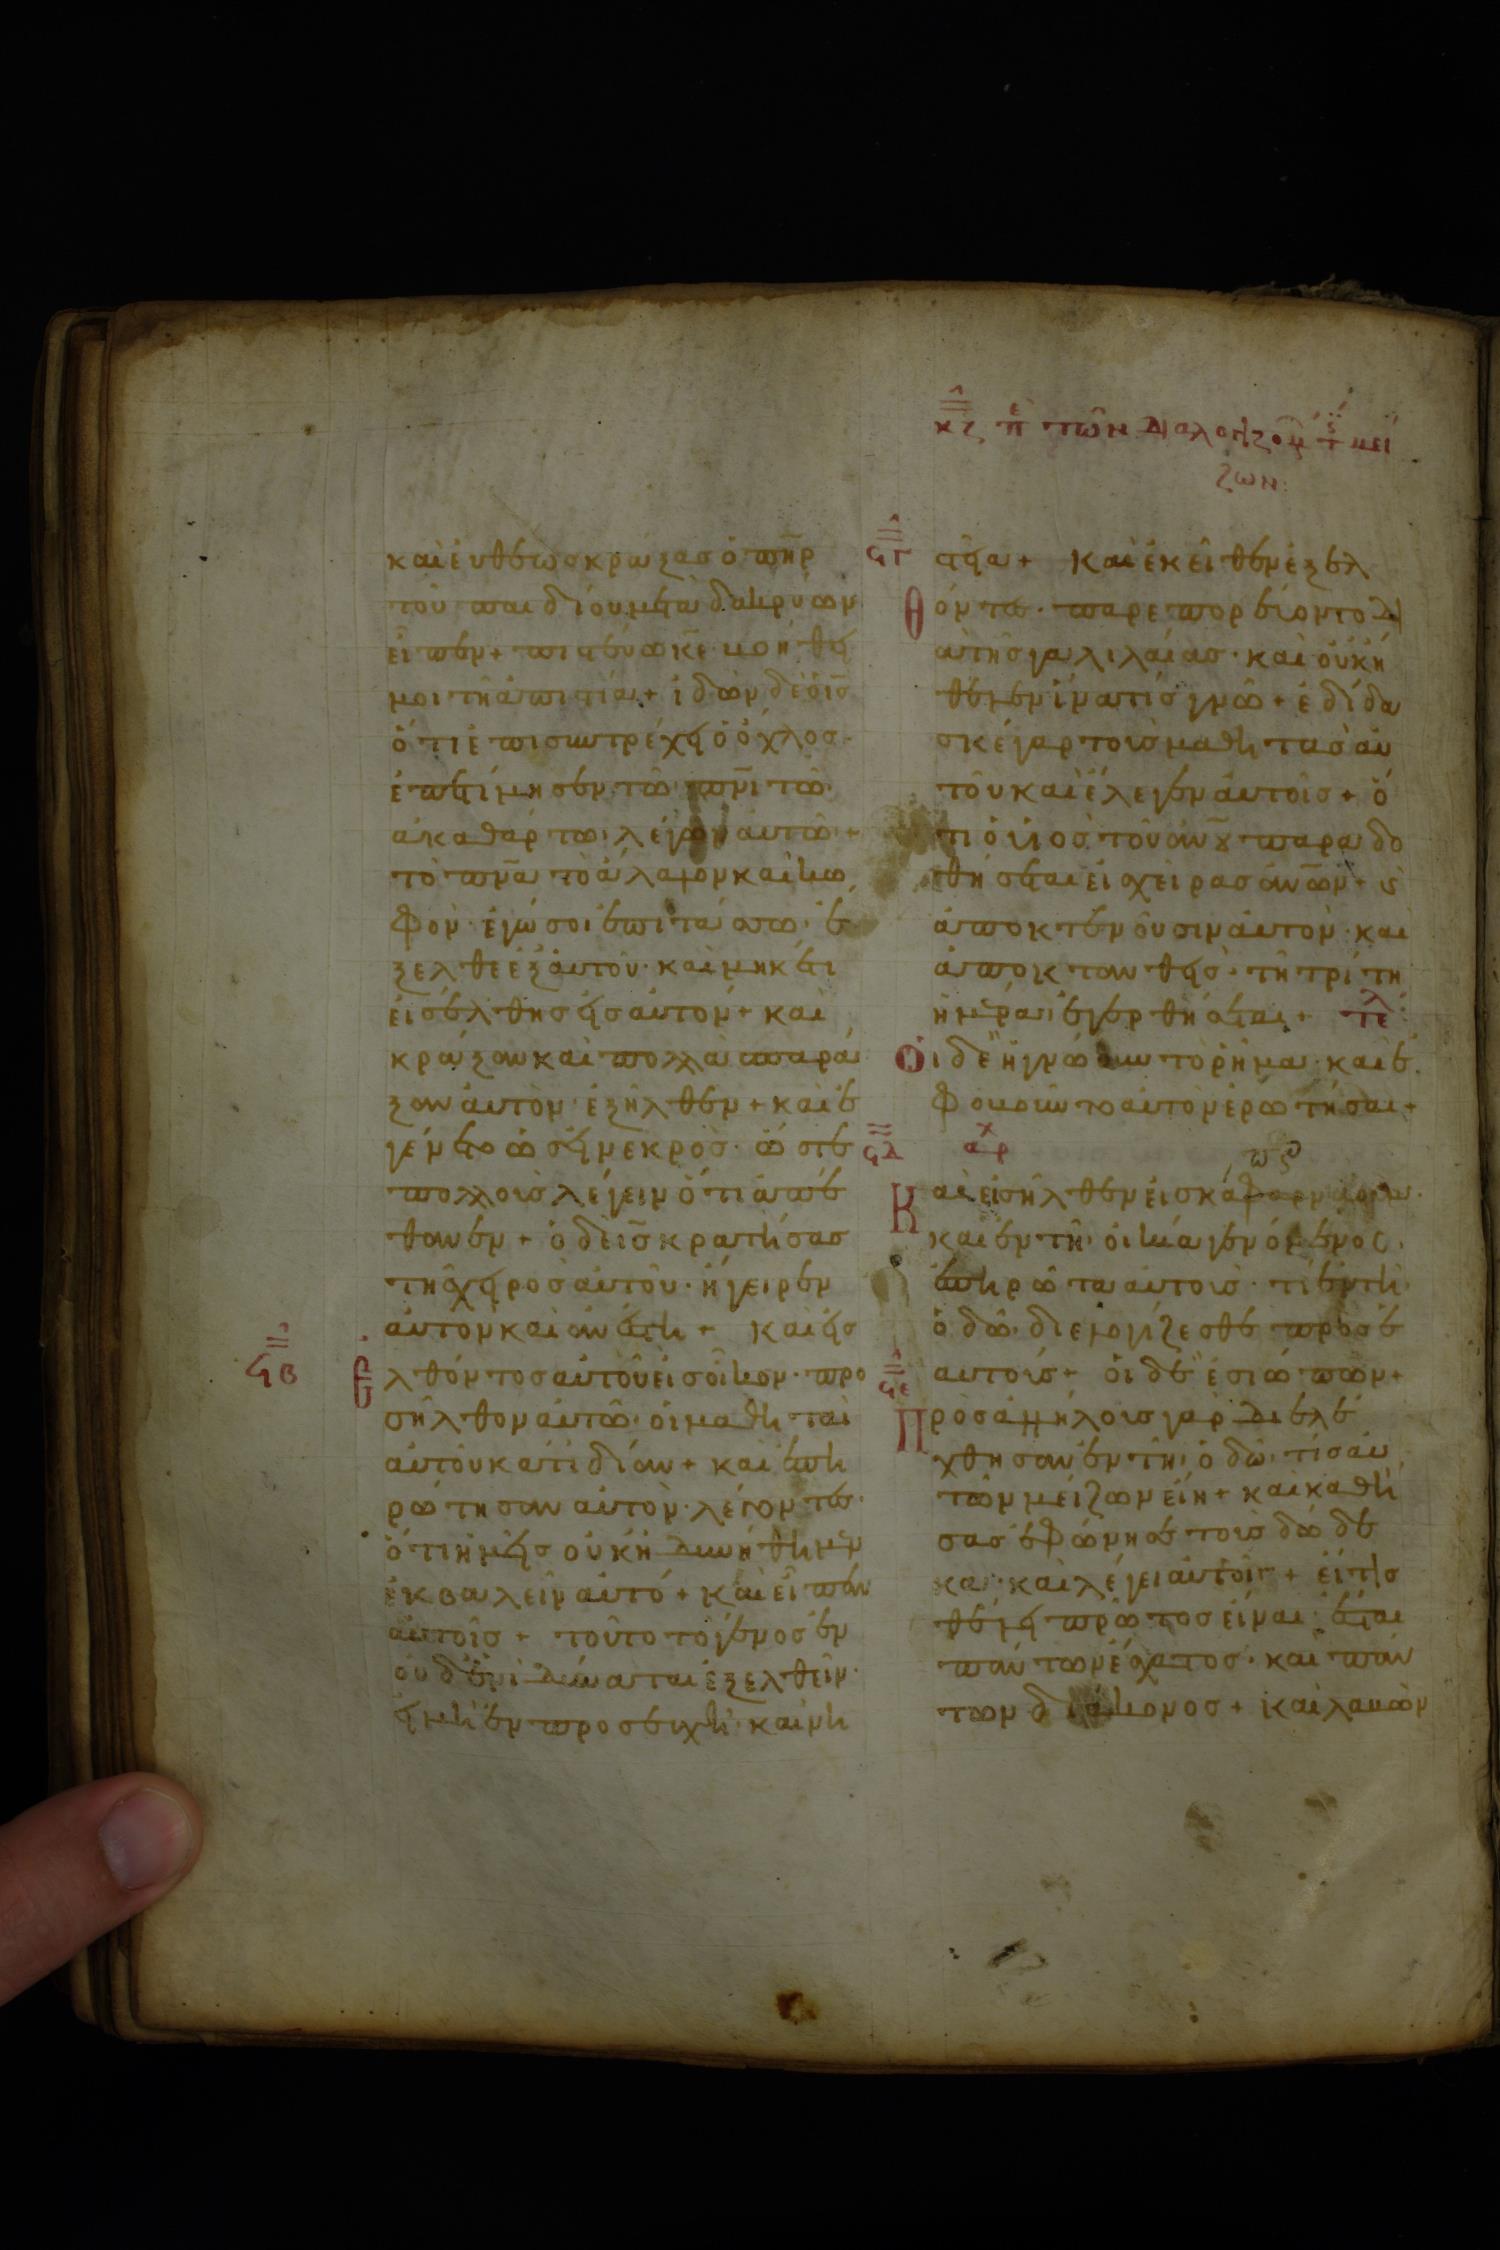 κζ πε τῶν διαλογιζομ τίς μεί
ζων:
καὶ ἐυθέως κράξας ὁ π̅η̅ρ
τοῦ παιδίου μετὰ δακρύων
εἶπεν + πιστεύω κ̅ε̅· βοήθει
μοι τῆ ἀπιστία + ἰδὼν δὲ ὁ ι̅ς̅
ὅτι ἐπισυντρέχει ὁ ὄχλος·
ἐπετίμησεν τῶ π̅ν̅ι̅ τῶ
ἀκαθάρτω· λέγων ἀυτῶ +
τὸ π̅ν̅α̅ τὸ ἄλαλον καὶ κω
φὸν· ἐγώ σοι ἐπιτάσσω· ἔ
ξελθε ἐξ ἀυτοῦ· καὶ μηκέτι
εἰσέλθης εἰς ἀυτόν + καὶ
κράξαν καὶ πολλὰ σπαρά
ξαν ἀυτὸν· ἐξῆλθεν + καὶ ἐ
γένετο ὡσεὶ νεκρὸς· ὥστε
πολλοὺς λέγειν ὅτι ἀπέ
θανεν + ὁ δὲ ι̅ς̅ κρατήσας
τῆς χειρὸς ἀυτοῦ· ἤγειρεν
ἀυτὸν καὶ ἀνέστη + Καὶ εἰσ
ϟβ Ελθόντος ἀυτοῦ εἰς οἶκον· προ
σῆλθον ἀυτῶ· οἱ μαθηταὶ
ἀυτοῦ κατιδίαν + καὶ ἐπη
ρώτησαν ἀυτὸν· λέγοντες·
ὅτι ἡμεῖς οὐκ ἠδυνήθημεν
ἐκβαλεῖν ἀυτό + Καὶ εἶπεν
ἀυτοῖς + τοῦτο τὸ γένος ἐν
οὐδενὶ δύναται ἐξελθεῖν·
εἰ μὴ ἐν προσευχῆ· καὶ νη
ϟγ στεία + Καὶ ἐκεῖθεν ἐξελ
Θόντες· παρεπορεύοντο δι
ὰ τῆς γαλιλαίας· καὶ οὐκ ἤ
θελεν ἵνα τίς γνῶ + ἐδίδα
σκε γὰρ τοὺς μαθητὰς ἀυ
τοῦ καὶ ἔλεγεν ἀυτοῖς + ὅ
τι ὁ υἱὸς τοῦ α̅ν̅ο̅υ̅ παραδο
θήσεται εἰς χεῖρας α̅ν̅ω̅ν̅ + καὶ
ἀποκτενοῦσιν ἀυτὸν· καὶ
ἀποκτανθεὶς· τῆ τρίτη
ἡμέρα ἐγερθήσεται + τελ
Οι δὲ ἠγνόουν τὸ ρῆμα· καὶ ἐ
φοβοῦντο ἀυτὸν ἐρωτῆσαι +
ϟδ αρχ
Και εἰσῆλθεν εἰς καφαρναοὺμ·
καὶ ἐν τῆ οἰκία γενόμενος·
ἐπηρώτα ἀυτοὺς· τί ἐν τῆ
ὁδῶ· διελογίζεσθε πρὸς ἑ
ϟε αυτούς + οἱ δὲ ἐσιώπων +
Πρὸς ἀλλήλους γὰρ διελέ
χθησαν ἐν τῆ ὁδῶ· τίς ἀυ
τῶν μείζων εἴη + καὶ καθή
σας ἐφώνησε τοὺς δώδε
κα· καὶ λέγει ἀυτοῖς + εἴ τις
θέλει πρῶτος εἶναι· ἔσται
πάντων ἔσχατος· καὶ πάν
των διάκονος + καὶ λαβὼν